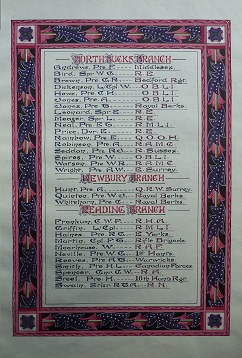 NORTH BUCKS BRANCH
Andrews, Pte F. --- Middlesex.
Bird, Spr W G. -- R.E.
Brown, Pte C.R. -- Bedford Rgt.
Dickenson, L/Cpl W. -- O.B.L.I.
Howe, Pte C.H. -- O.B.L.I.
Jones, Pte A. -- O.B.L.I.
Jones, Pte G. -- Royal Berks.
Leonard, Spr E. -- R.E.
Spr -- R.E.
Neal, Pte E G. -- R.M.L.I.
Price, Dvr E. -- R.E.
Rainbow, Pte E. -- Q.O.O.H.
Robinson, Pte A. -- R.A.M.C.
Seddon, Pte -- R. Sussex.
Spires, Pte W. -- O.B.L.I.
Watson, Pte W.R. -- R.A.M.C.
Wright, Pte A.W. -- E. Surrey.
NEWBURY BRANCH
Hunt, Pte A. -- Q.R.W. Surrey.
Quinton, Pte W. -- Royal Berks.
Whitehorn, Pte C. -- Royal Berks.
READING BRANCH
Franklin, C.W.F. -- R.H.A.
Griffin, L/Cpl. -- R.M.L.I.
Haines, Pte R.C. -- E. Yorks.
Martin, Cpl P G. -- Rifle Brigade.
Moorhouse, W. -- R.A.F.
Neville, Pte W G. -- 1st Hants.
Reeves, Pte A G. -- Warwicks.
Smith, Pte N.L. -- Canadian Forces.
Spencer, Gnr C.W. -- R.A.
Steel, Pte H. -- 10th Hants Rgt.
Swain, -- R.N.